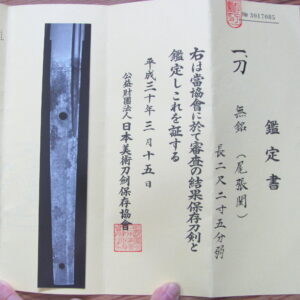 № 3017085
鑑定書
一、刀 無銘(尾張関)
長 二尺二寸五分弱
右は當協會に於て審査の結果保存刀剣と
鑑定しこれを証する
平成三十年三月十五日
公益財團法人 日本美術刀劍保存協會